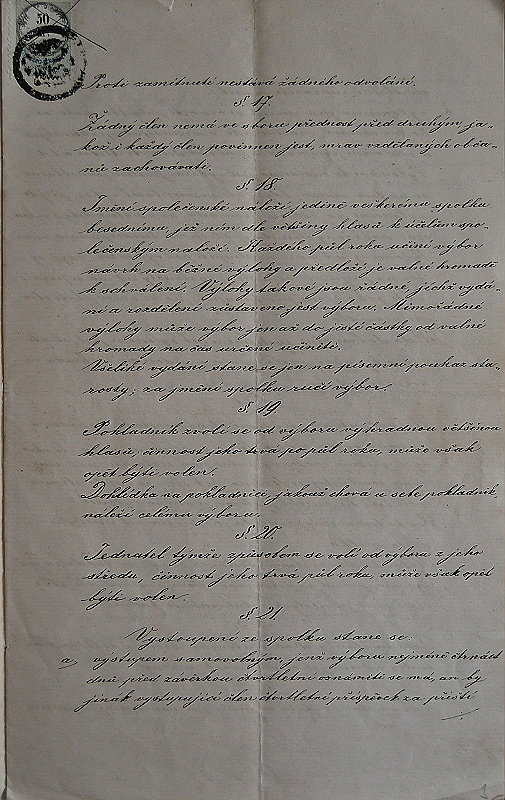 50
Proti zamítnutí nestává žádného odvolání.
§. 17.
Žádný člen nemá ve sboru přednost před druhým, ja-
kož i každý člen povinnen jest, mrav vzdělaných obča-
nů zachovávati.
§. 18.
Jmění společenské náleží jedině veškerému spolku
besednímu, jež ním dle většiny hlasů k účelům spo-
lečenským naloží. Každého půl roku učiní výbor
návrh na běžné výlohy a předloží je valné hromadě
k schválení. Výlohy takové jsou řádné, jichž vydá-
ní a rozdělení zůstaveno jest výboru. Mimořádné
výlohy může výbor jen až do jisté částky od valné
hromady na čas určené učiniti.
Všeliké vydání stane se jen na písemní poukaz sta-
rosty; za jmění spolku ručí výbor.
§. 19.
Pokladník zvolí se od výboru výhradnou většinou
hlasů, činnost jeho trvá po půl roku, může však
opět býti volen.
Dohlídka na pokladnici, jakouž chová u sebe pokladník,
náleží celému výboru.
§. 20.
Jednatel týmže způsobem se volí od výboru z jeho
středu, činnost jeho trvá půl roku, může však opět
býti volen.
§. 21.
Vystoupení ze spolku stane se:
a, výstupem samovolným, jenž výboru nejméně čtrnáct
dnů před závěrkou čtvrtletní oznámiti se má, an by
jinák vystupující člen čtvrtletní příspěvek za příští